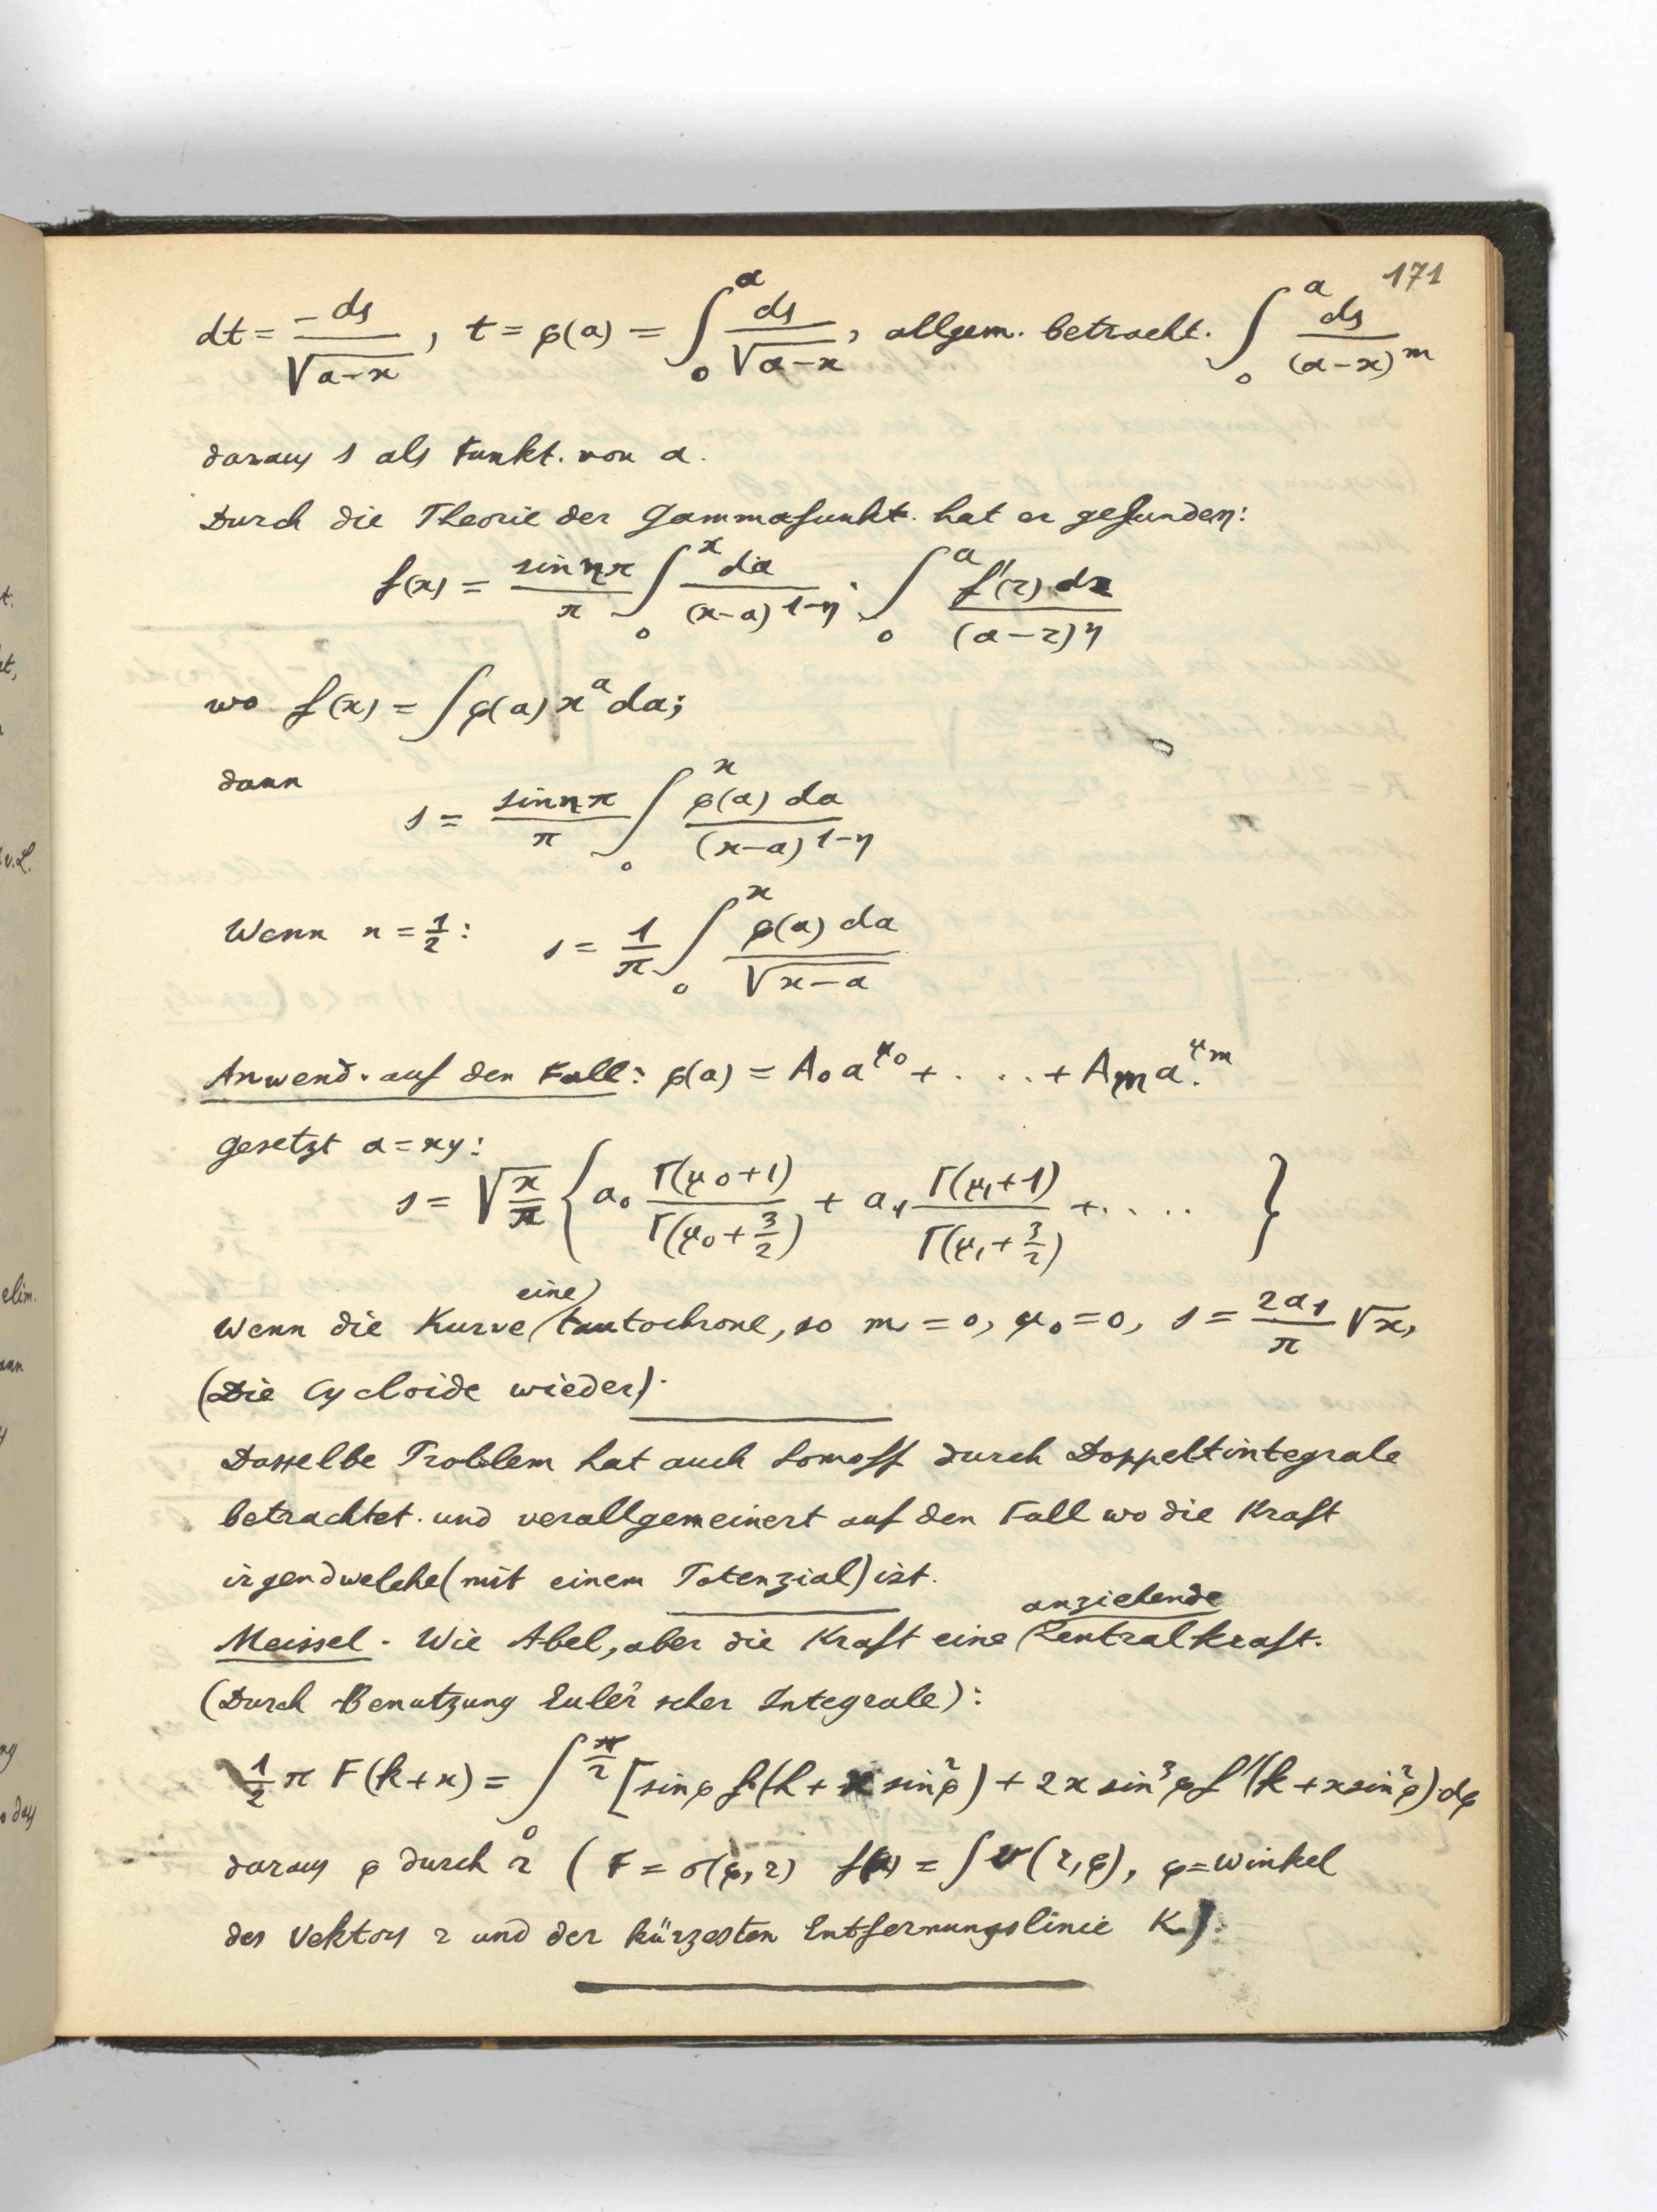 171
dt = -ds/√(a-x), t = φ(a) = ∫₀ᵃ ds/√(a-x), allgem. betracht. ∫₀ᵃ ds/(a-x)ᵐ
daraus s als Funkt. von a.
Durch die Theorie der Gammafunkt. hat er gefunden:
f(x) = sin nπ/π ∫₀ˣ da/(x-a)¹⁻ⁿ · ∫₀ᵃ f'(z) dz/(a-z)ⁿ
wo f(x) = ∫φ(a) xᵃ da;
dann
s = sin nπ/π ∫₀ˣ φ(a) da/(x-a)¹⁻ⁿ
Wenn n = 1/2: s = 1/π ∫₀ˣ φ(a) da/√(x-a)
Anwend. auf den Fall: φ(a) = A₀a^μ₀ + . . . . + Aₘa^μm.
gesetzt a = xy:
s = √(x/π) { a₀ Γ(μ₀+1)/Γ(μ₀+3/2) + a₁ Γ(μ₁+1)/Γ(μ₁+3/2) + . . . . }
Wenn die Kurve eine tautochrone, so m = 0, μ₀ = 0, s = 2a₁/π √x,
(Die Cycloide wieder).
Dasselbe Problem hat auch Somoff durch Doppeltintegrale
betrachtet und verallgemeinert auf den Fall wo die Kraft
irgendwelche (mit einem Potenzial) ist.
Meissel. Wie Abel, aber die Kraft eine anziehende Zentralkraft.
(Durch Benutzung Euler'scher Integrale):
1/2 π F(k+x) = ∫₀^(π/2) [sinφ f(k + x sin²φ) + 2x sin³φ f'(k + x sin²φ) dφ
daraus φ durch r ( F = σ(φ, r) f(x) = ∫ v(r, φ), φ = Winkel
des Vektors r und der kürzesten Entfernungslinie K)